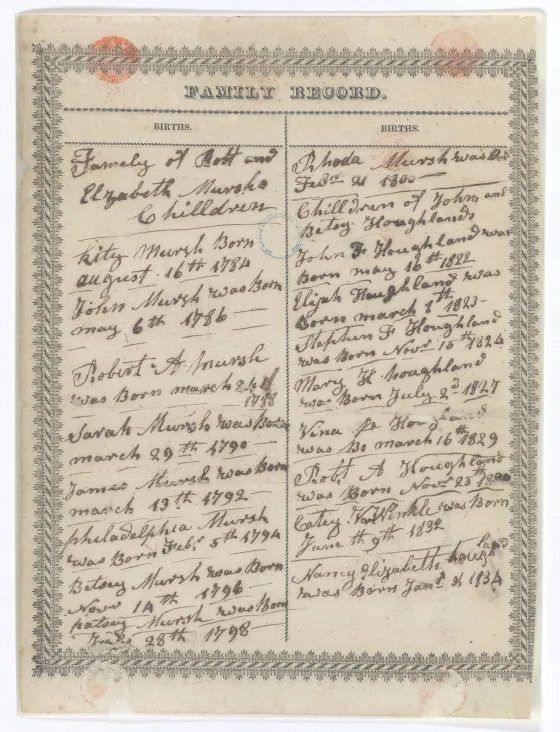 FAMILY RECORD.
BIRTHS.
Famely of Robt and
Elizabeth Murshs
Chilldren
kity Mursh Born
august 16th 1784
John Mursh was Born
may 6th 1786
Robert A Mursh
was Born march
1788
Sarah Mursh was Born
march 29th 1790
James Mursh was Born
march 13th 1792
philadelphia Mursh
was Born Febr 5th 1794
Betsey Mursh was Born
Novr 14th 1796
patsey Mursh was Born
28th 1798
BIRTHS.
Rhoda Mursh was
Febr 21
Chilldren of John and
Betsy Houghlands
John F Houghland was
Born may 16th 1822
Elijah Houghland was
Born march 1th 1823
Stephen F Houghland
was Born Novr 10th 1824
Mary H houghland
was Born July 2d 1827
Vina
was Bo march 16th 1829
Robt A Houghland
was Born Novr
Catey VanWinkle was Born
June th 9th 1832
Nancy Elizabeth houghland
was Born Janr 31 1834